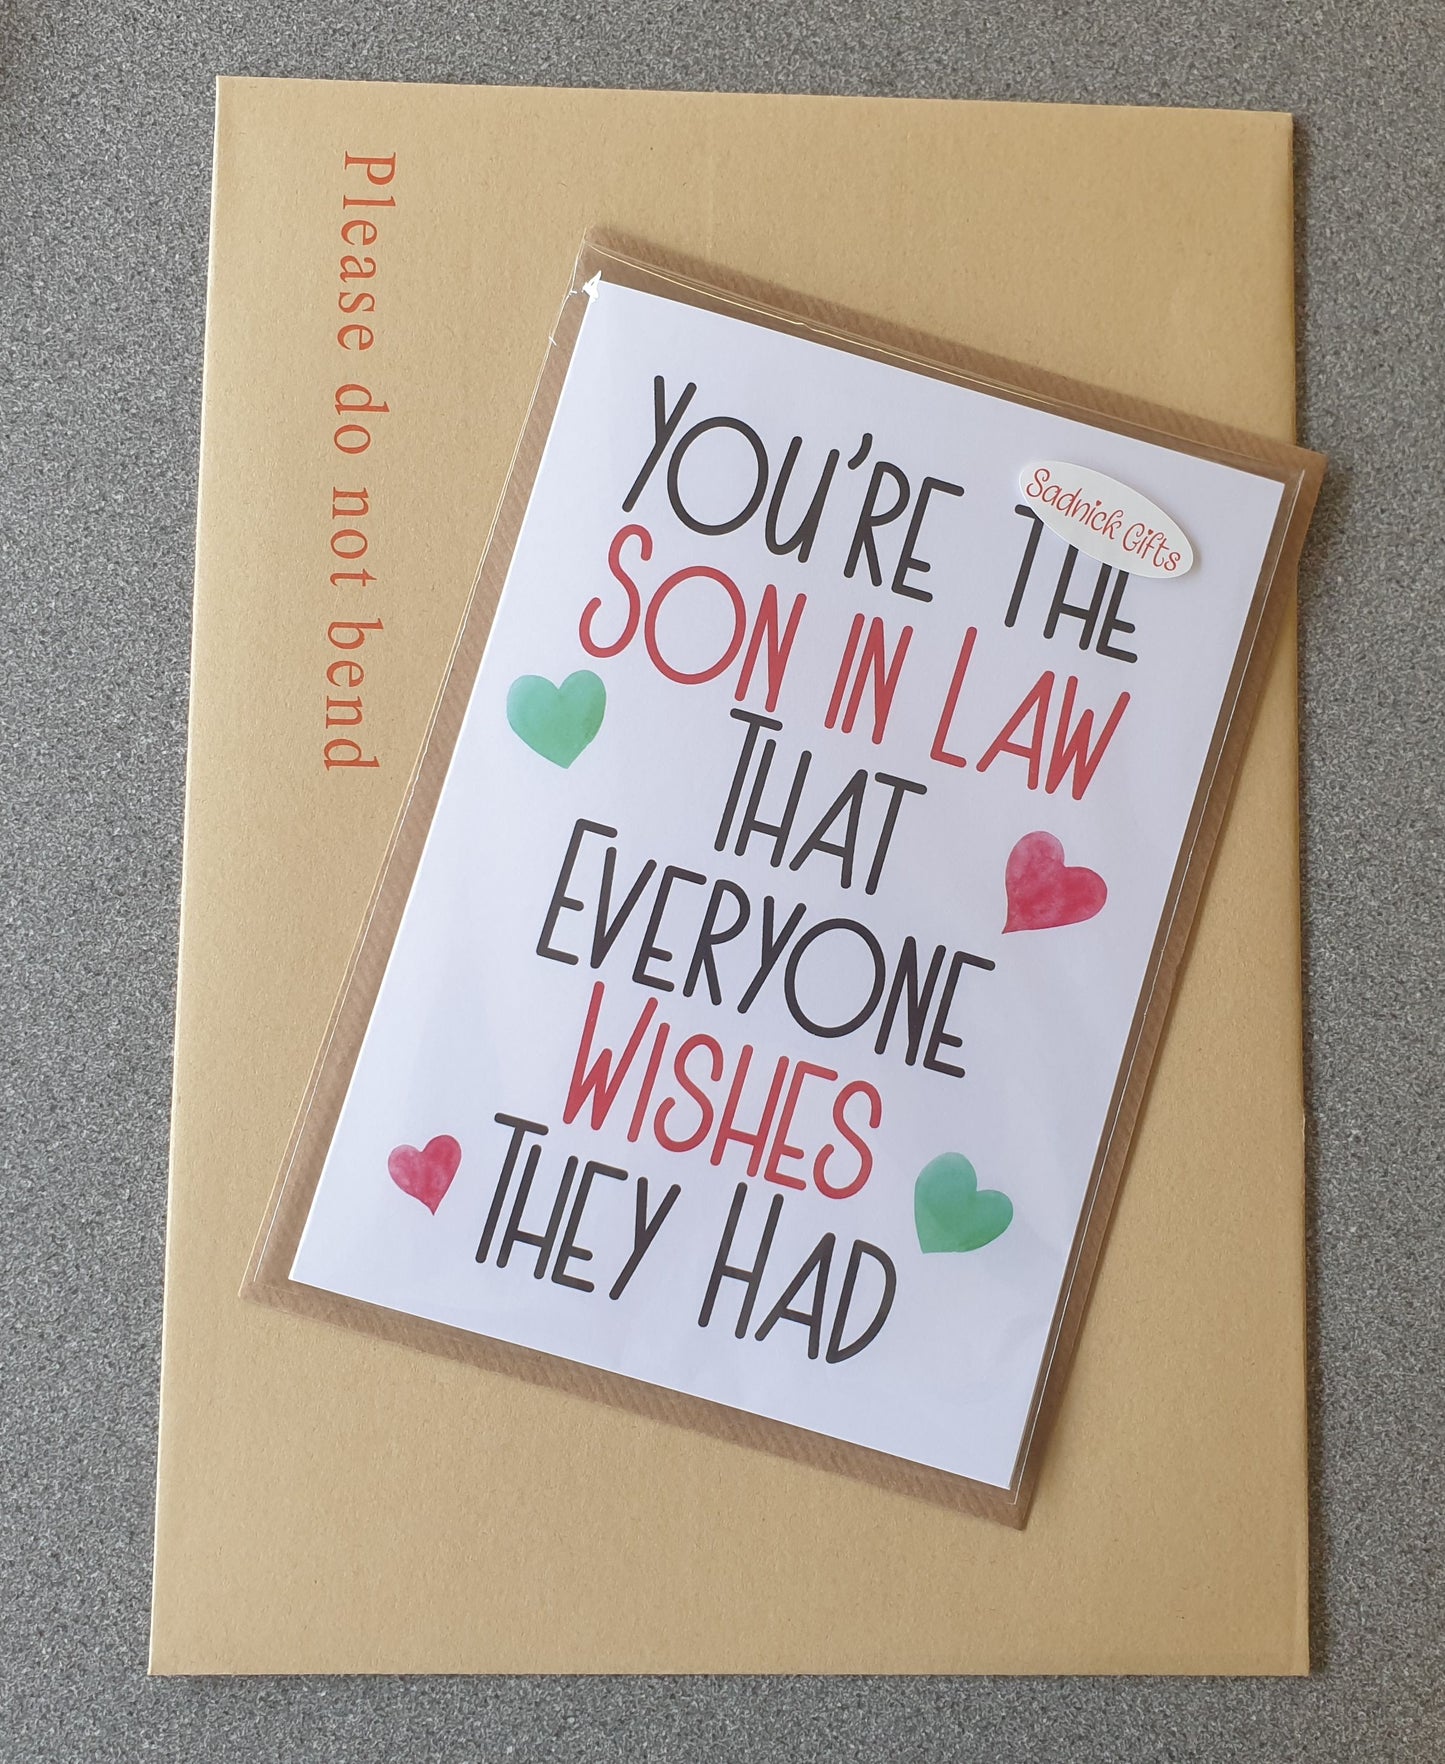 Please do not bend
YOU'RE THE
SON IN LAW
THAT
EVERYONE
WISHES
THEY HAD
Sadnick Gifts